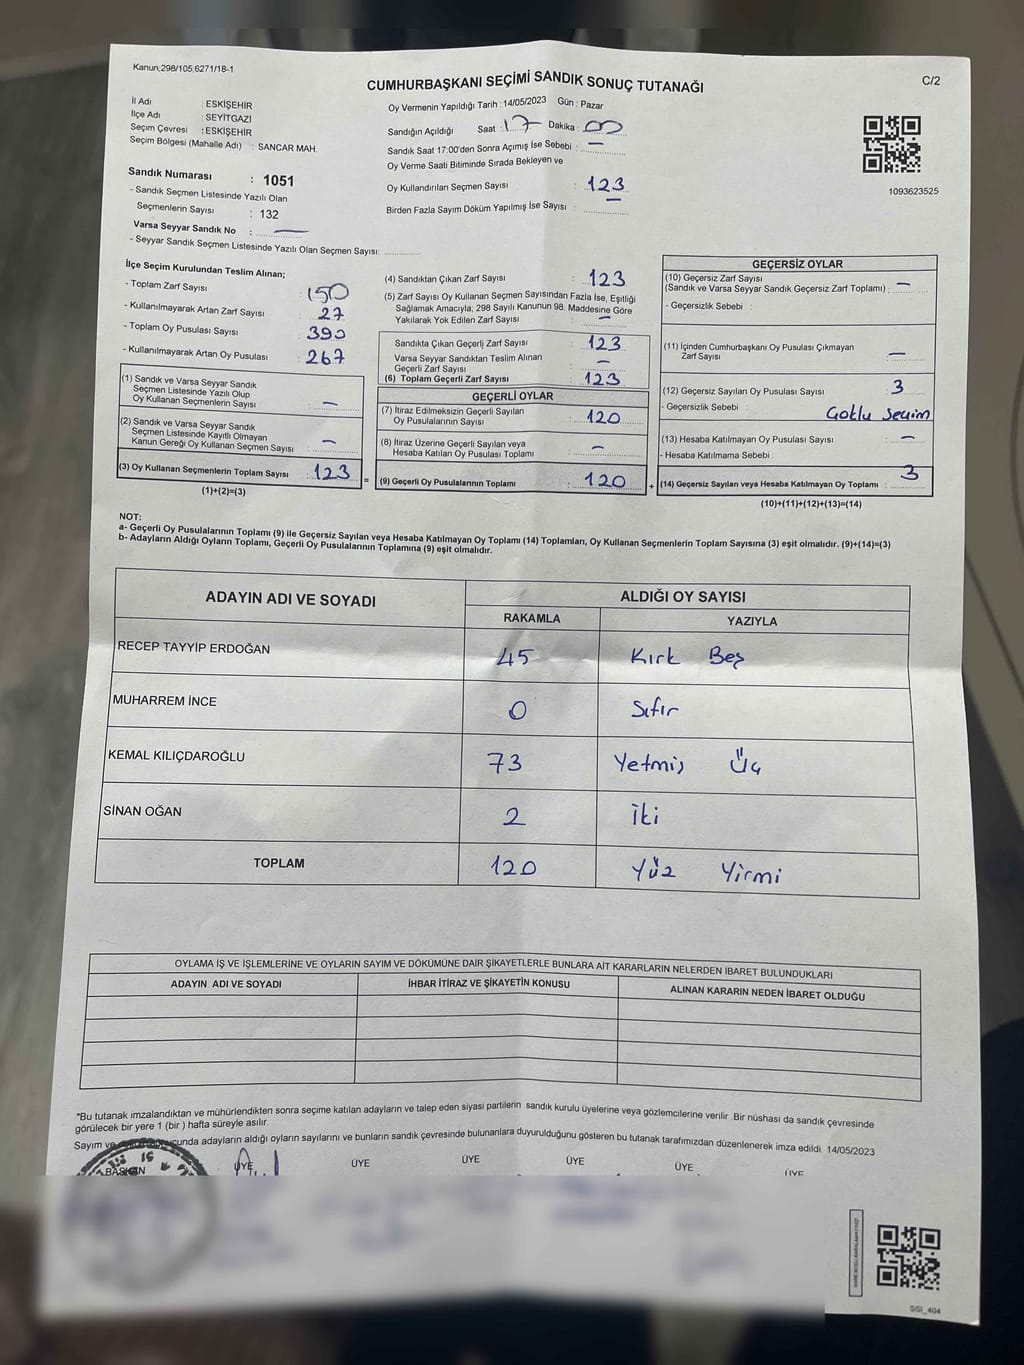 Kanun;298/105;6271/18-1
C/2
CUMHURBAŞKANI SEÇİMİ SANDIK SONUÇ TUTANAĞI
İl Adı : ESKİŞEHİR
İlçe Adı : SEYİTGAZİ
Seçim Çevresi : ESKİŞEHİR
Seçim Bölgesi (Mahalle Adı) : SANCAR MAH.
Sandık Numarası : 1051
- Sandık Seçmen Listesinde Yazılı Olan
Seçmenlerin Sayısı : 132
Varsa Seyyar Sandık No : —
- Seyyar Sandık Seçmen Listesinde Yazılı Olan Seçmen Sayısı:
Oy Vermenin Yapıldığı Tarih : 14/05/2023 Gün : Pazar
Sandığın Açıldığı Saat : 17 Dakika : 00
Sandık Saat 17:00'den Sonra Açımış İse Sebebi : —
Oy Verme Saati Bitiminde Sırada Bekleyen ve
Oy Kullandırılan Seçmen Sayısı : 123
Birden Fazla Sayım Döküm Yapılmış İse Sayısı : —
1093623525
İlçe Seçim Kurulundan Teslim Alınan;
- Toplam Zarf Sayısı : 150
- Kullanılmayarak Artan Zarf Sayısı : 27
- Toplam Oy Pusulası Sayısı : 390
- Kullanılmayarak Artan Oy Pusulası : 267
(1) Sandık ve Varsa Seyyar Sandık
Seçmen Listesinde Yazılı Olup
Oy Kullanan Seçmenlerin Sayısı : —
(2) Sandık ve Varsa Seyyar Sandık
Seçmen Listesinde Kayıtlı Olmayan
Kanun Gereği Oy Kullanan Seçmen Sayısı : —
(3) Oy Kullanan Seçmenlerin Toplam Sayısı : 123
(1)+(2)=(3)
(4) Sandıktan Çıkan Zarf Sayısı : 123
(5) Zarf Sayısı Oy Kullanan Seçmen Sayısından Fazla İse, Eşitliği
Sağlamak Amacıyla; 298 Sayılı Kanunun 98. Maddesine Göre
Yakılarak Yok Edilen Zarf Sayısı : —
Sandıkta Çıkan Geçerli Zarf Sayısı : 123
Varsa Seyyar Sandıktan Teslim Alınan
Geçerli Zarf Sayısı : —
(6) Toplam Geçerli Zarf Sayısı : 123
GEÇERLİ OYLAR
(7) İtiraz Edilmeksizin Geçerli Sayılan
Oy Pusulalarının Sayısı : 120
(8) İtiraz Üzerine Geçerli Sayılan veya
Hesaba Katılan Oy Pusulası Toplamı : —
= (9) Geçerli Oy Pusulalarının Toplamı : 120 +
GEÇERSİZ OYLAR
(10) Geçersiz Zarf Sayısı
(Sandık ve Varsa Seyyar Sandık Geçersiz Zarf Toplamı) : —
- Geçersizlik Sebebi :
(11) İçinden Cumhurbaşkanı Oy Pusulası Çıkmayan
Zarf Sayısı —
(12) Geçersiz Sayılan Oy Pusulası Sayısı : 3
- Geçersizlik Sebebi : Çoklu Seçim
(13) Hesaba Katılmayan Oy Pusulası Sayısı : —
- Hesaba Katılmama Sebebi :
(14) Geçersiz Sayılan veya Hesaba Katılmayan Oy Toplamı : 3
(10)+(11)+(12)+(13)=(14)
NOT:
a- Geçerli Oy Pusulalarının Toplamı (9) ile Geçersiz Sayılan veya Hesaba Katılmayan Oy Toplamı (14) Toplamları, Oy Kullanan Seçmenlerin Toplam Sayısına (3) eşit olmalıdır. (9)+(14)=(3)
b- Adayların Aldığı Oyların Toplamı, Geçerli Oy Pusulalarının Toplamına (9) eşit olmalıdır.
ADAYIN ADI VE SOYADI ALDIĞI OY SAYISI
RAKAMLA YAZIYLA
RECEP TAYYİP ERDOĞAN 45 Kırk Beş
MUHARREM İNCE 0 Sıfır
KEMAL KILIÇDAROĞLU 73 Yetmiş Üç
SİNAN OĞAN 2 İki
TOPLAM 120 Yüz Yirmi
OYLAMA İŞ VE İŞLEMLERİNE VE OYLARIN SAYIM VE DÖKÜMÜNE DAİR ŞİKAYETLERLE BUNLARA AİT KARARLARIN NELERDEN İBARET BULUNDUKLARI
ADAYIN ADI VE SOYADI İHBAR İTİRAZ VE ŞİKAYETİN KONUSU ALINAN KARARIN NEDEN İBARET OLDUĞU
*Bu tutanak imzalandıktan ve mühürlendikten sonra seçime katılan adayların ve talep eden siyasi partilerin sandık kurulu üyelerine veya gözlemcilerine verilir. Bir nüshası da sandık çevresinde
görülecek bir yere 1 (bir) hafta süreyle asılır.
Sayım ve sonucunda adayların aldığı oyların sayılarını ve bunların sandık çevresinde bulunanlara duyurulduğunu gösteren bu tutanak tarafımızdan düzenlenerek imza edildi. 14/05/2023
BAŞKAN ÜYE ÜYE ÜYE ÜYE ÜYE ÜYE
GSI_404